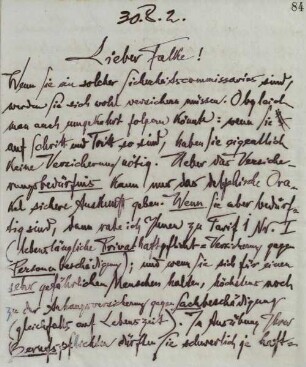 84
30.8.2.
Lieber Falke!
Wenn Sie ein solcher Sicherheitscommissarius sind,
werden Sie sich wohl versichern müssen. Obgleich
man auch umgekehrt folgern könnte: wenn Sie
auf Schritt und Tritt so sind, haben Sie eigentlich
keine Versicherung nötig. Ueber das Versiche-
rungsbedürfnis kann nur das delphische Ora-
kel sichere Auskunft geben. Wenn Sie aber bedürf-
tig sind, dann rate ich Ihnen zu Tarif 1 Nr. I
(lebenslängliche Privathaftpflicht-Versicherung gegen
Personenbeschädigung); und wenn Sie sich für einen
sehr gefährlichen Menschen halten, höchstens noch
zu der Anhangsversicherung gegen Sachbeschädigung
(gleichfalls auf Lebenszeit). In Ausübung Ihrer
dürften Sie schwerlich je